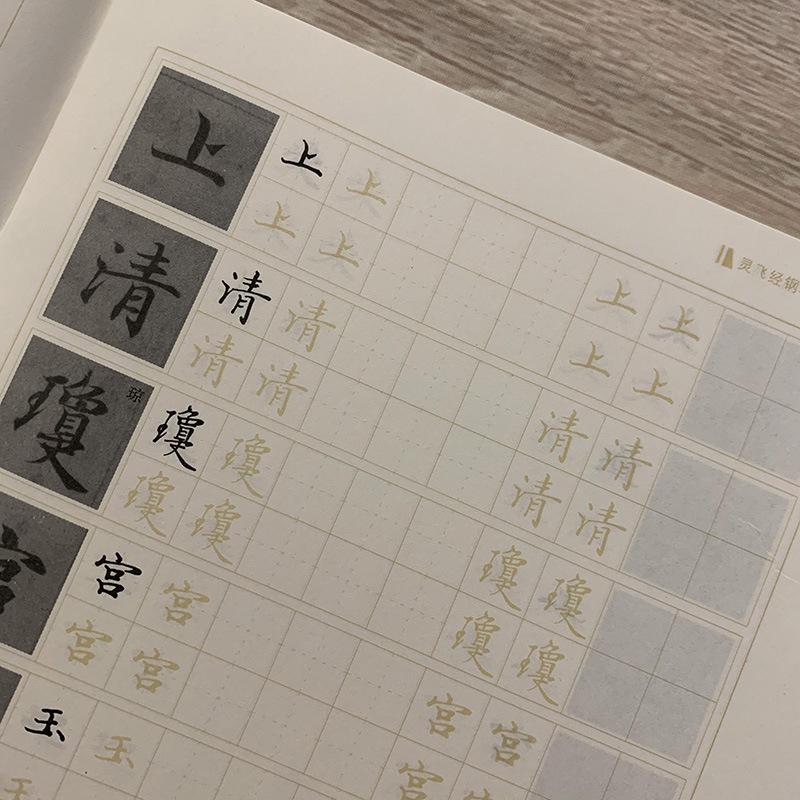 灵飞经钢
上 上 上 上 上
上 上 上 上
清 清 清 清 清
清 清 清 清
瓊 琼 瓊 瓊 瓊 瓊
瓊 瓊 瓊 瓊
宫 宫 宫 宫 宫
宫 宫 宫 宫
玉 玉
玉